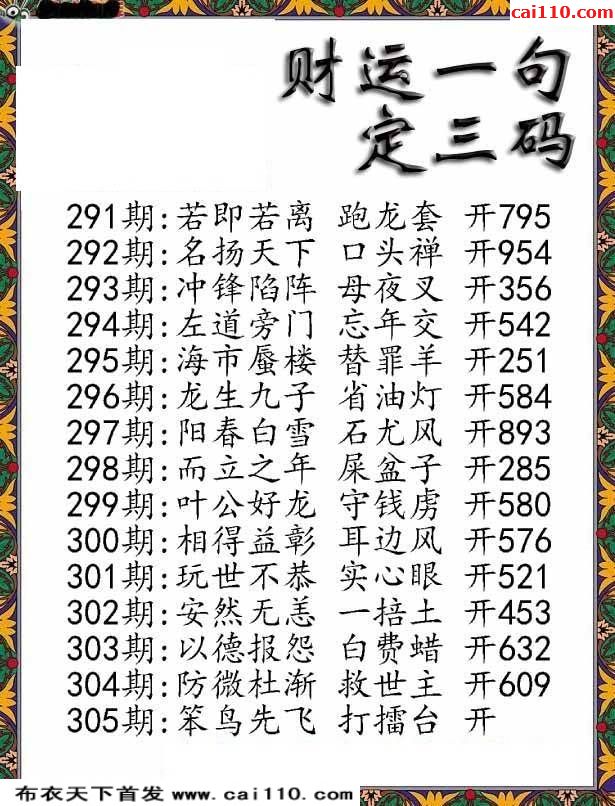 cai110.com
财运一句
定三码
291期:若即若离 跑龙套 开795
292期:名扬天下 口头禅 开954
293期:冲锋陷阵 母夜叉 开356
294期:左道旁门 忘年交 开542
295期:海市蜃楼 替罪羊 开251
296期:龙生九子 省油灯 开584
297期:阳春白雪 石尤风 开893
298期:而立之年 屎盆子 开285
299期:叶公好龙 守钱虏 开580
300期:相得益彰 耳边风 开576
301期:玩世不恭 实心眼 开521
302期:安然无恙 一掊土 开453
303期:以德报怨 白费蜡 开632
304期:防微杜渐 救世主 开609
305期:笨鸟先飞 打擂台 开
布衣天下首发 www.cai110.com